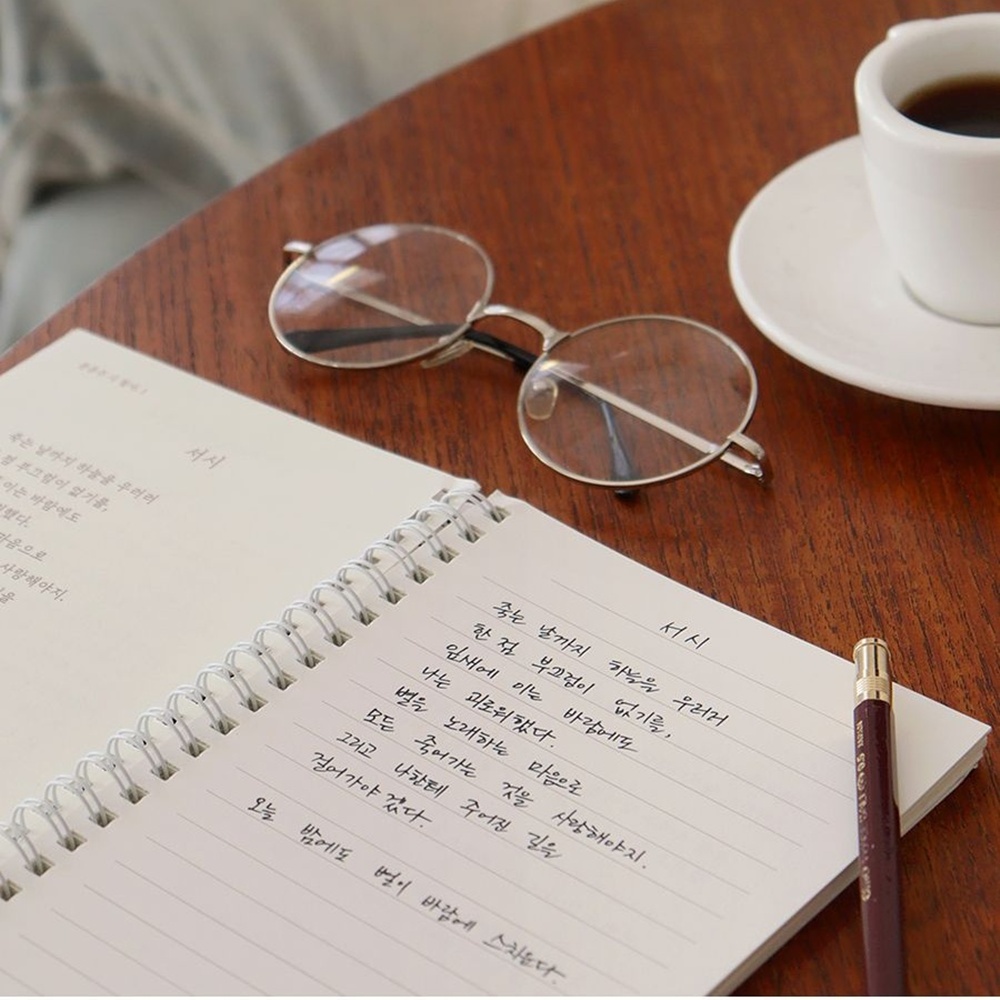 서시
죽는 날까지 하늘을 우러러
부끄럼이 없기를,
이는 바람에도
마음으로
사랑해야지.
서시
죽는 날까지 하늘을 우러러
한 점 부끄럼이 없기를,
잎새에 이는 바람에도
나는 괴로워했다.
별을 노래하는 마음으로
모든 죽어가는 것을 사랑해야지.
그리고 나한테 주어진 길을
걸어가야 겠다.
오늘 밤에도 별이 바람에 스치운다.